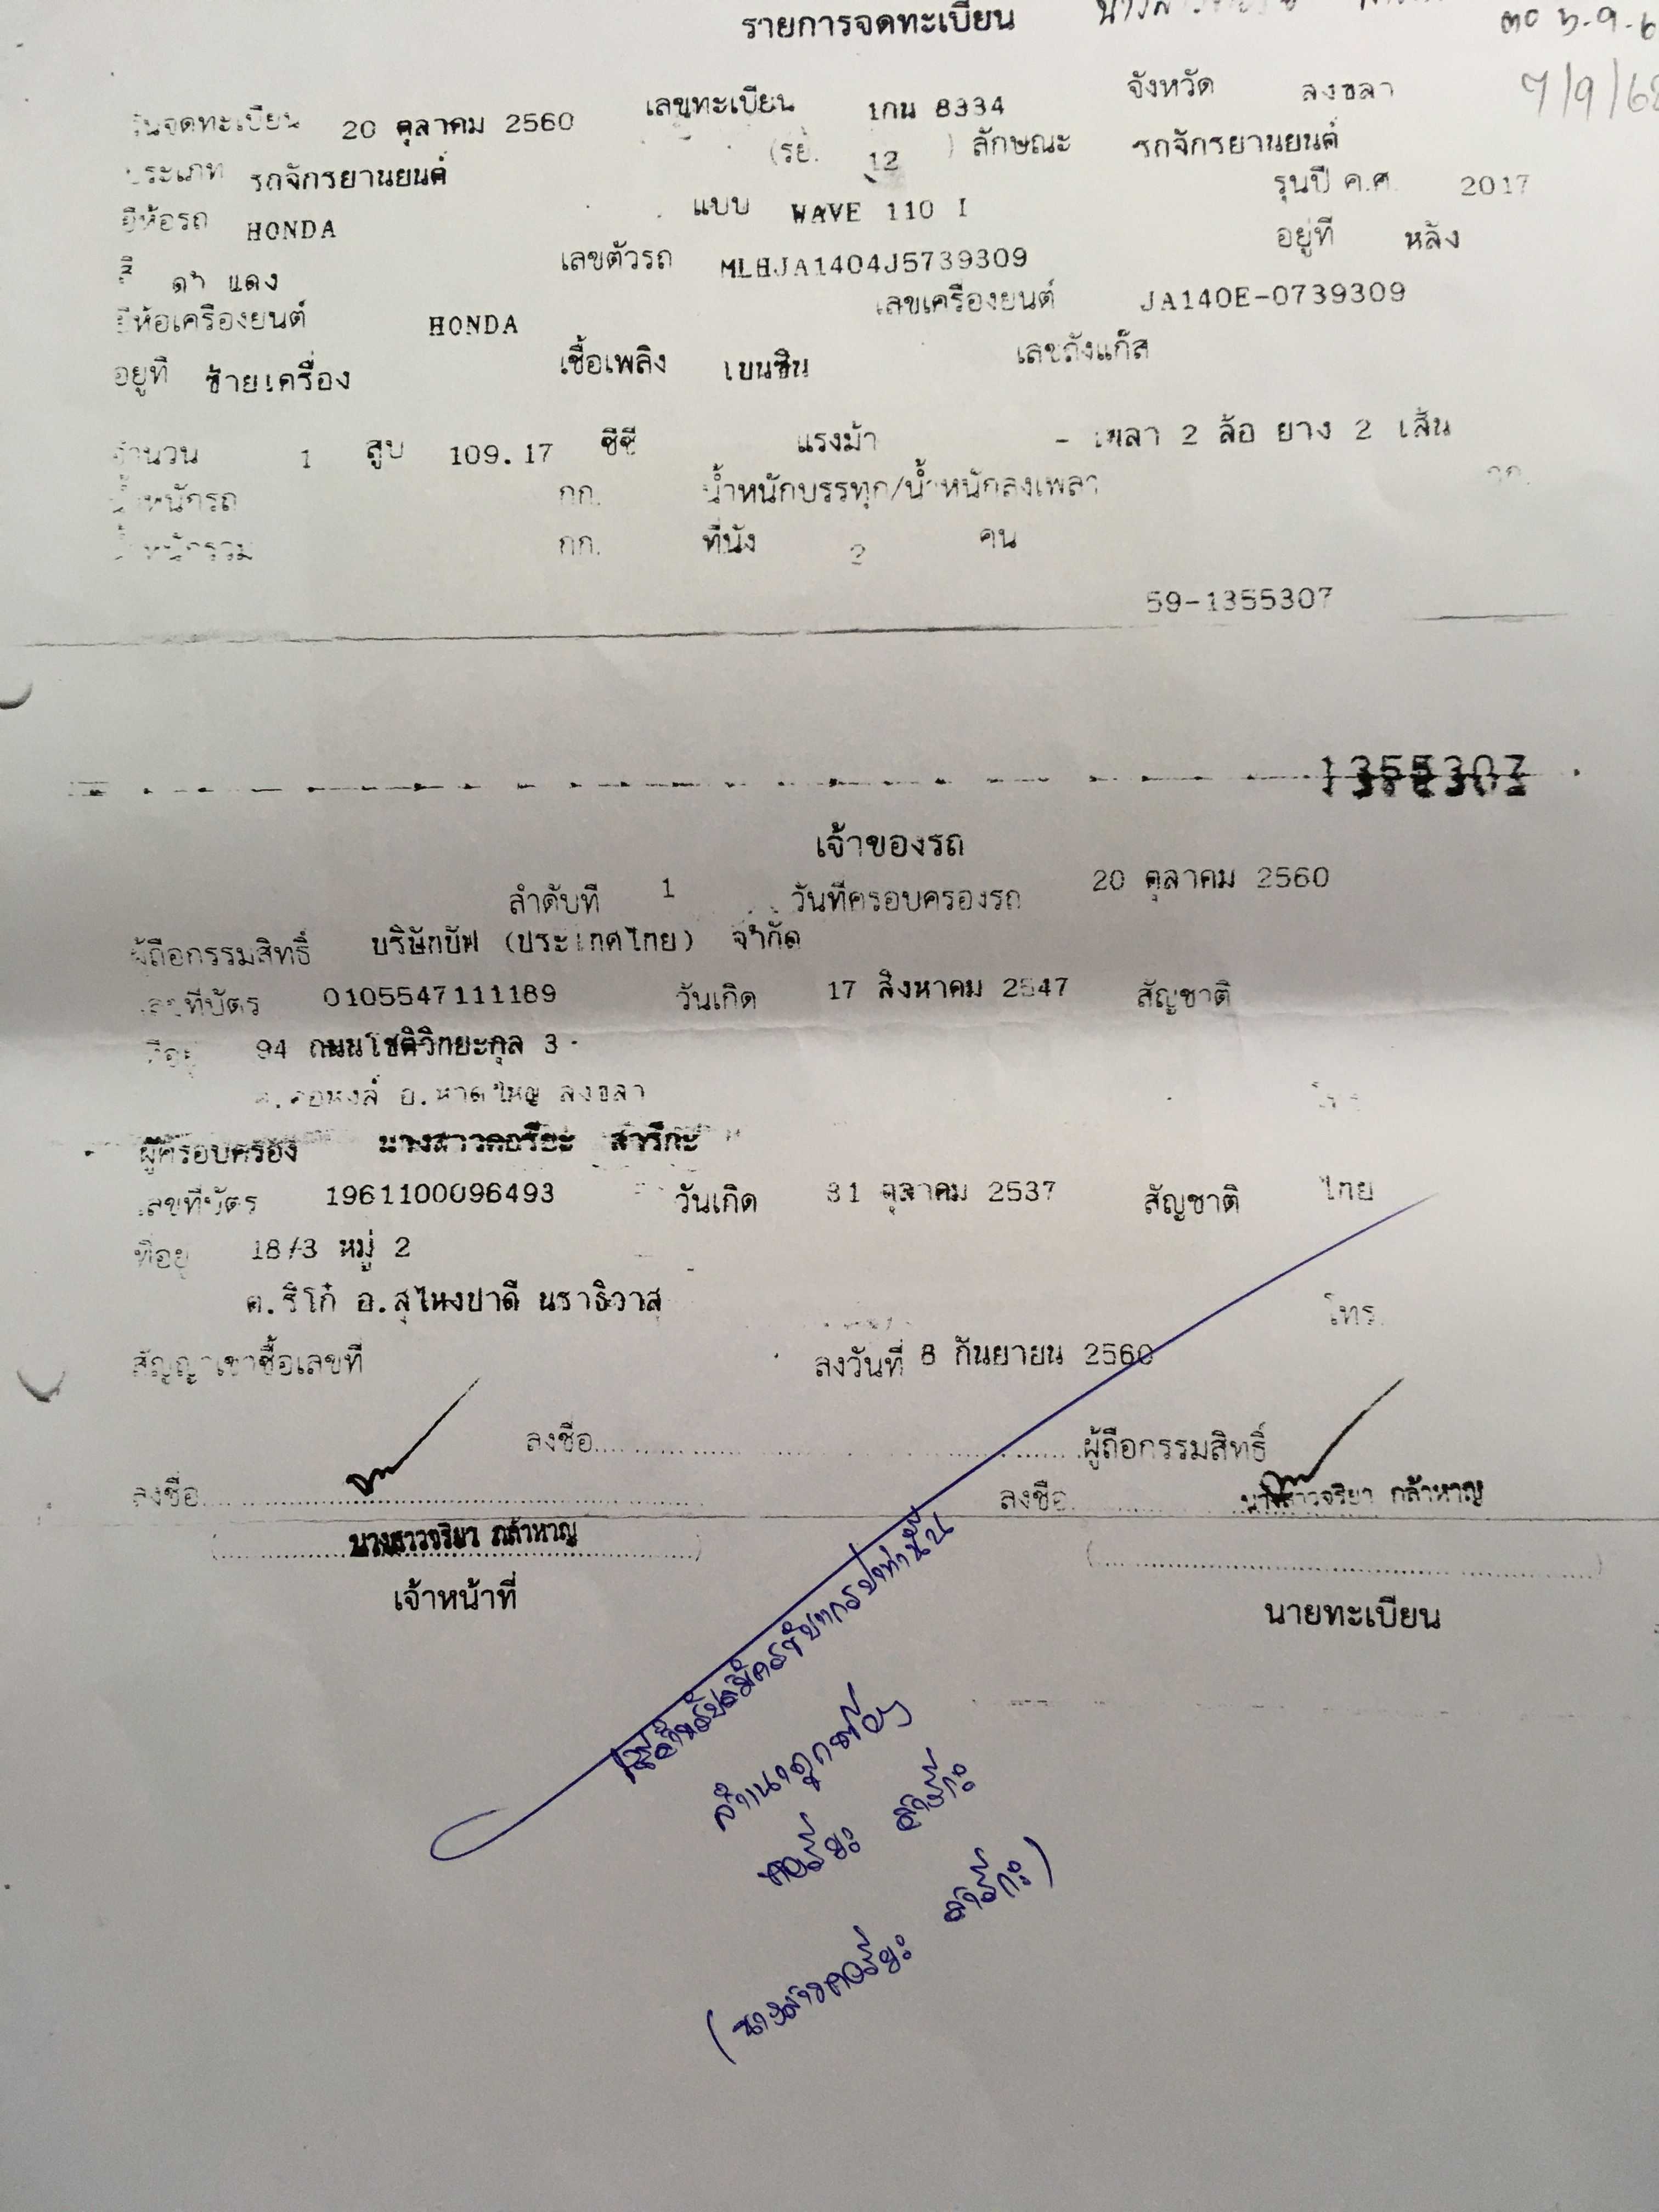 รายการจดทะเบียน
7/9/6
วันจดทะเบียน 20 ตุลาคม 2560 เลขทะเบียน 1กน 8334 จังหวัด สงขลา
ประเภท รถจักรยานยนต์ (รย. 12 ) ลักษณะ รถจักรยานยนต์
ยี่ห้อรถ HONDA แบบ WAVE 110 I รุ่นปี ค.ศ. 2017
สี ดำ แดง เลขตัวรถ MLHJA1404J5739309 อยู่ที่ หลัง
ยี่ห้อเครื่องยนต์ HONDA เลขเครื่องยนต์ JA140E-0739309
อยู่ที่ ซ้ายเครื่อง เชื้อเพลิง เบนซิน เลขถังแก๊ส
จำนวน 1 สูบ 109.17 ซีซี แรงม้า - เพลา 2 ล้อ ยาง 2 เส้น
น้ำหนักรถ กก. น้ำหนักบรรทุก/น้ำหนักลงเพลา กก.
น้ำหนักรวม กก. ที่นั่ง 2 คน
59-1355307
1355307
เจ้าของรถ
ลำดับที่ 1 วันที่ครอบครองรถ 20 ตุลาคม 2560
ผู้ถือกรรมสิทธิ์ บริษัทบัฟ (ประเทศไทย) จำกัด
เลขที่บัตร 0105547111189 วันเกิด 17 สิงหาคม 2547 สัญชาติ
ที่อยู่ 94 ถนนโชติวิทยะกุล 3
ต.คอหงส์ อ.หาดใหญ่ สงขลา โทร
ผู้ครอบครอง นางสาวคอรีเยาะ สารีกะ
เลขที่บัตร 1961100096493 วันเกิด 31 ตุลาคม 2537 สัญชาติ ไทย
ที่อยู่ 18/3 หมู่ 2
ต.ริโก๋ อ.สุไหงปาดี นราธิวาส
โทร.
สัญญาเช่าซื้อเลขที่ ลงวันที่ 8 กันยายน 2560
ลงชื่อ ผู้ถือกรรมสิทธิ์
ลงชื่อ ลงชื่อ นางสาวจริยา กล้าหาญ
(นางสาวจริยา กล้าหาญ)
เจ้าหน้าที่ นายทะเบียน
สำเนาถูกต้อง